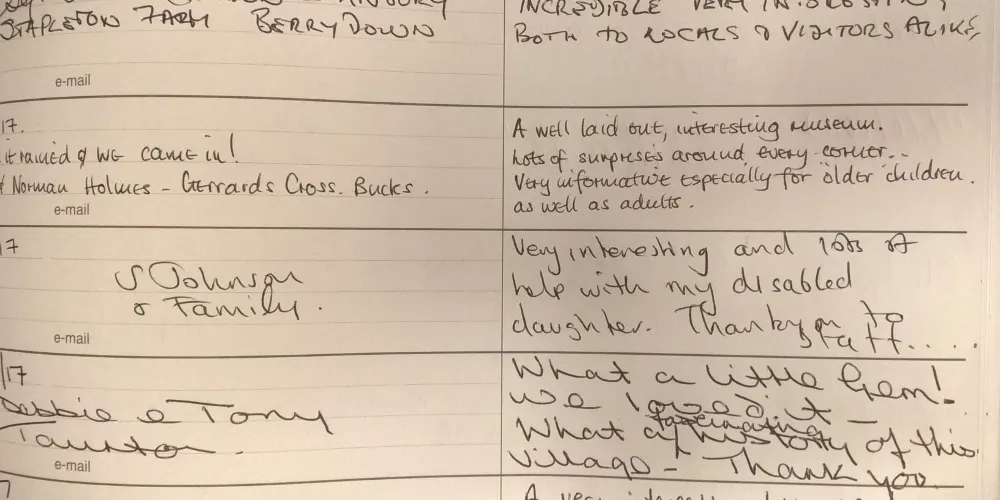 STAPLETON FARM BERRY DOWN
e-mail
INCREDIBLE VERY
BOTH TO LOCALS & VISITORS ALIKE,
17.
it rained & we came in!
Norman Holmes - Gerrards Cross. Bucks.
e-mail
A well laid out, interesting museum.
Lots of surpreses around every corner...
Very informative especially for older children.
as well as adults.
17
S Johnson
& Family.
e-mail
Very interesting and lots of
help with my disabled
daughter. Thankyou to
staff.....
/17
Debbie & Tony
Taunton.
e-mail
What a little Gem!
we loved it -
fascinating
What a history of this
village - Thank you
A very